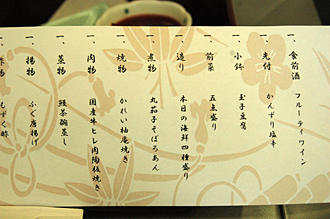 一、食前酒
フルーティワイン
一、先付
かんずり塩辛
一、小鉢
玉子豆腐
一、前菜
五点盛り
一、造り
本日の海鮮四種盛り
一、煮物
丸茄子そぼろあん
一、焼物
かれい柚庵焼き
一、肉物
国産牛ヒレ肉陶板焼き
一、蒸物
種茶碗蒸し
一、揚物
ふぐ唐揚げ
もずく酢